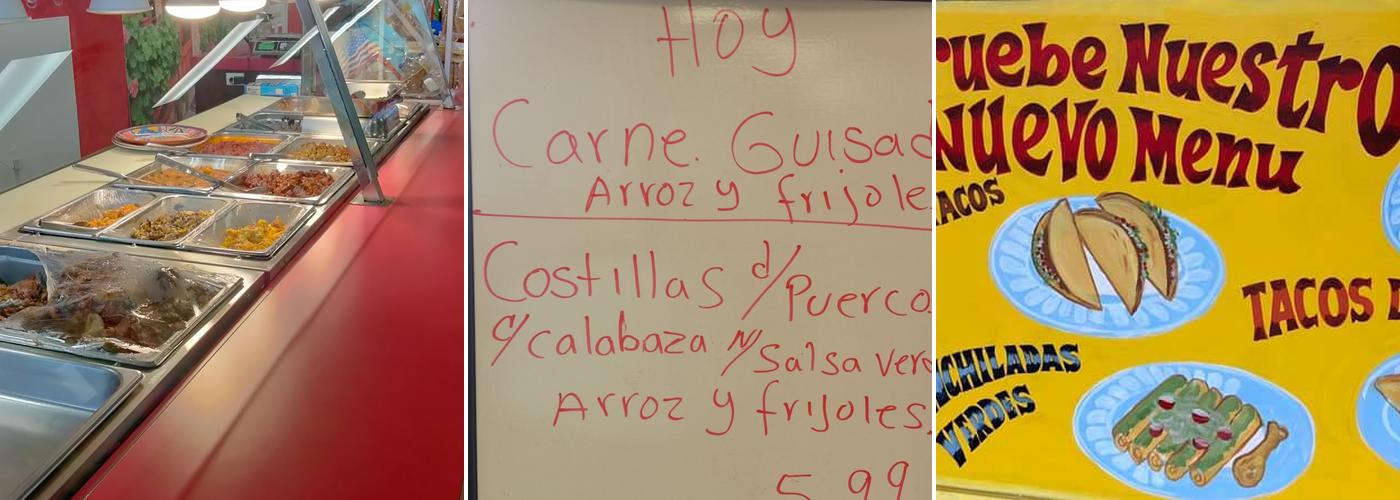 Hoy
Carne. Guisad
Arroz y frijole
Costillas d/Puerco
c/calabaza y/Salsa verd
Arroz y frijoles.
5.99
ruebe Nuestro
Nuevo Menu
ACOS
TACOS
CHILADAS
VERDES